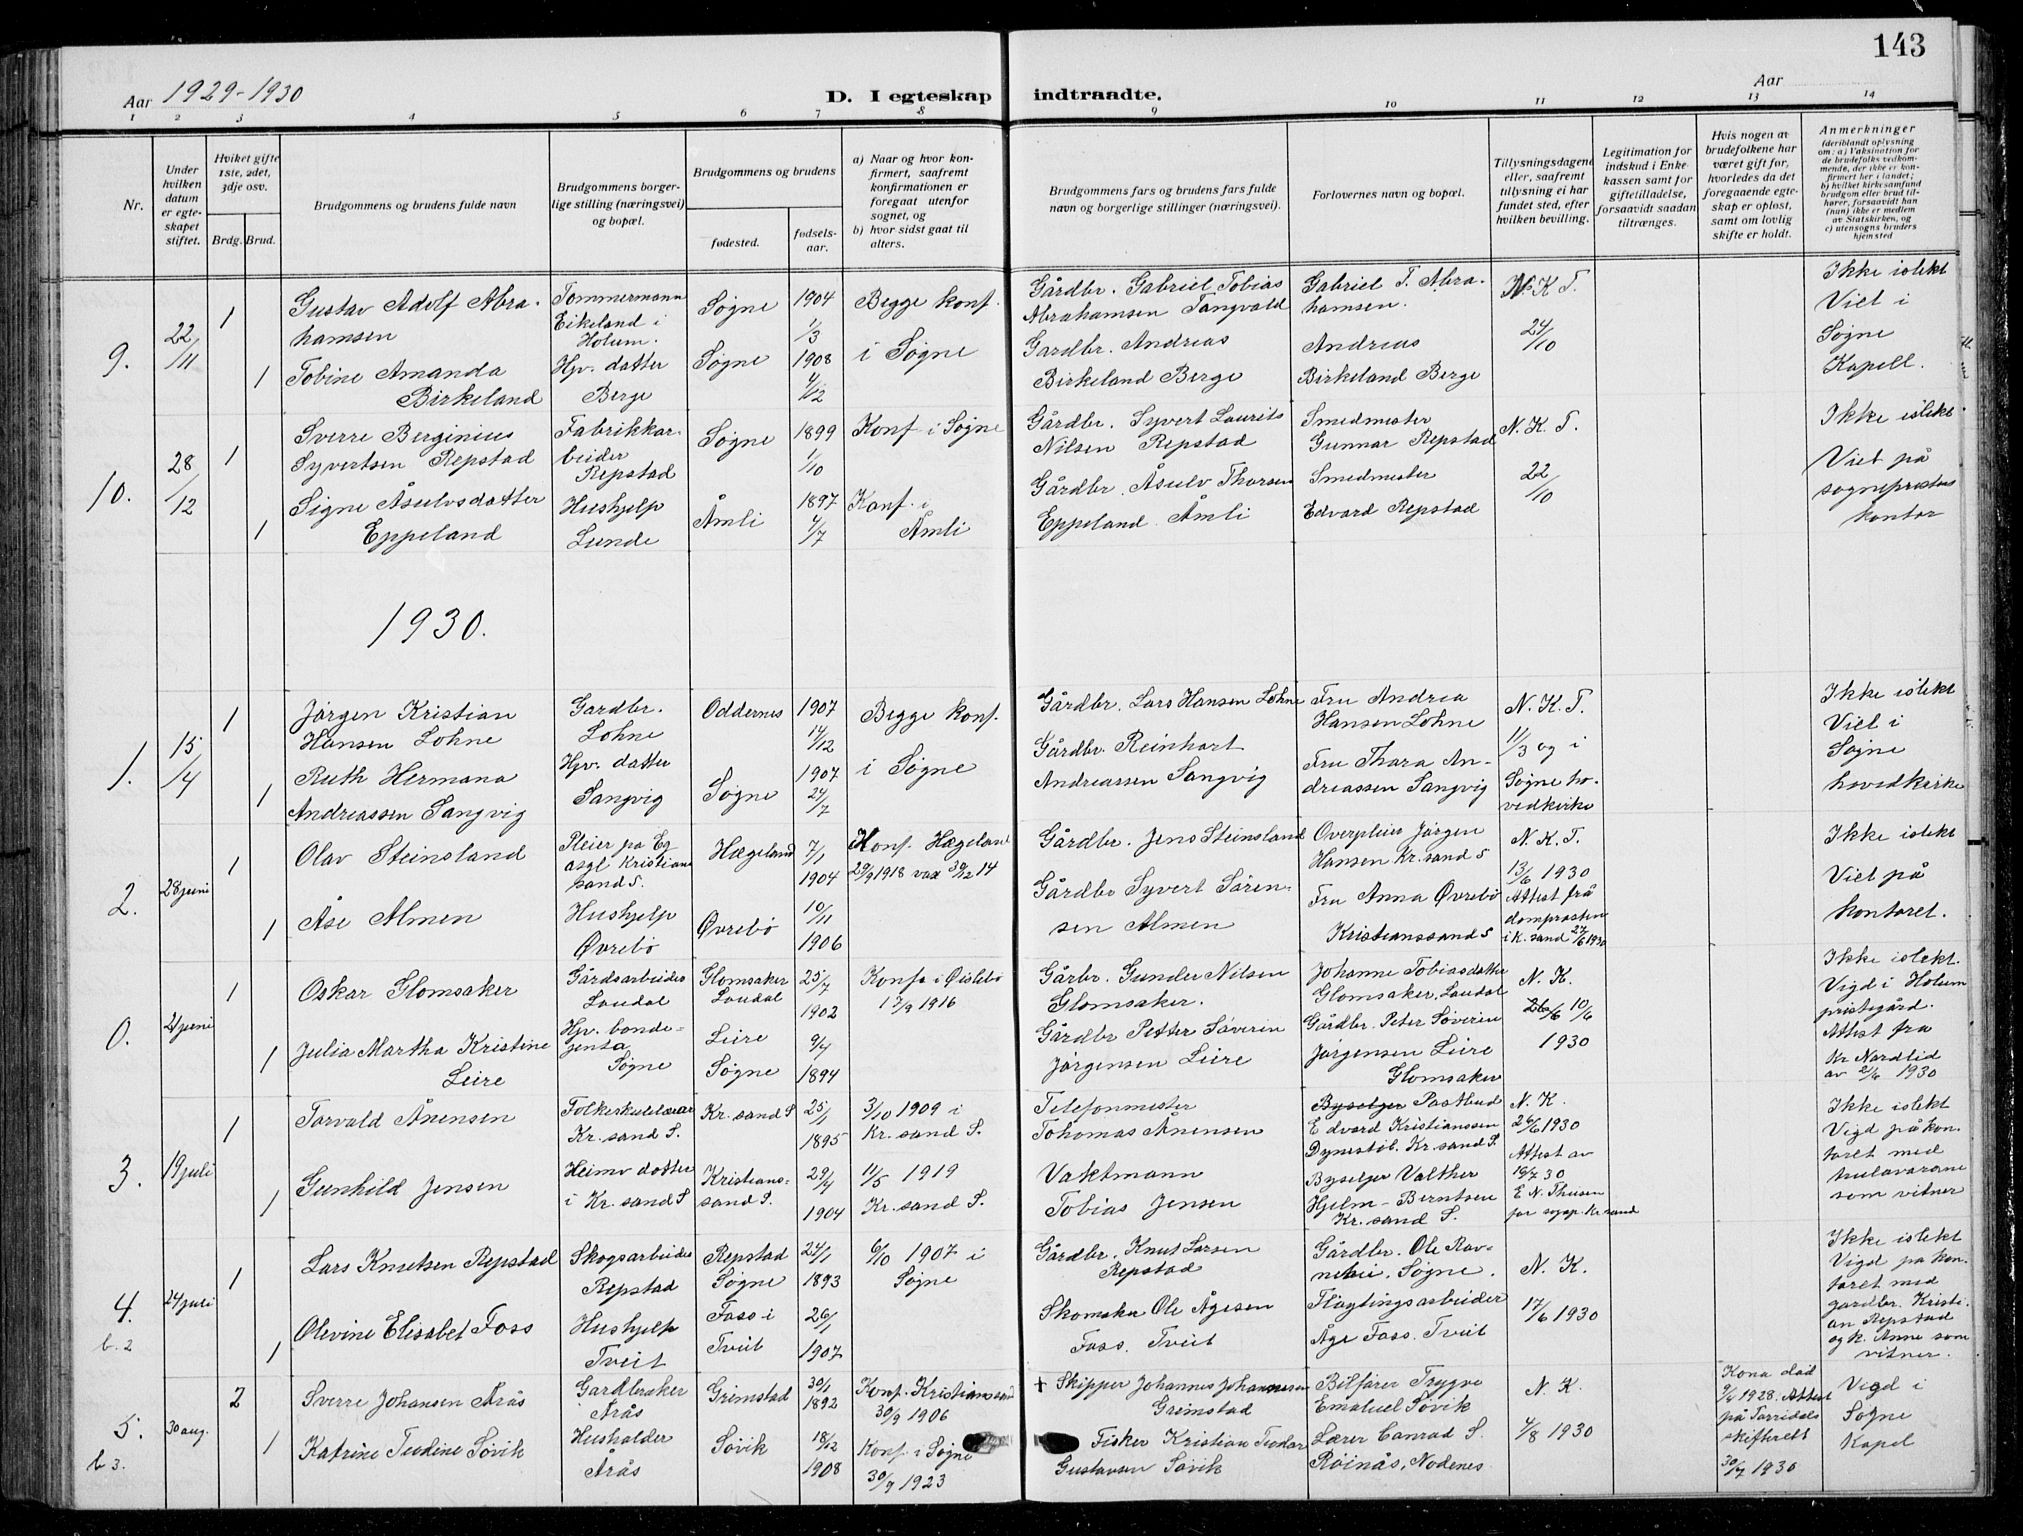 143
Aar 1929-1930
D. Iegteskap indtraadte.
Aar
1 2 3 4 5 6 7 8 9 10 11 12 13 14
Nr.
Under hvilken datum er egteskapet stiftet.
Hviket gifte 1ste, 2det, 3dje osv.
Brdg. Brud.
Brudgommens og brudens fulde navn
Brudgommens borgerlige stilling (næringsvei) og bopæl.
Brudgommens og brudens
fødested.
fødselsaar.
a) Naar og hvor konfirmert, saafremt konfirmationen er foregaat utenfor sognet, og
b) hvor sidst gaat til alters.
Brudgommens fars og brudens fars fulde navn og borgerlige stillinger (næringsvei).
Forlovernes navn og bopæl.
Tillysningsdagene eller, saafremt tillysning ei har fundet sted, efter hvilken bevilling.
Legitimation for indskud i Enkekassen samt for giftetilladelse, forsaavidt saadan tiltrænges.
Hvis nogen av brudefolkene har været gift før, hvorledes da det foregaaende egteskap er opløst, samt om lovlig skifte er holdt.
Anmerkninger (deriblandt oplysning om: a) Vaksination for de brudefolks vedkommende, der ikke er konfirmert her i landet; b) hvilket kirkesamfund brudgom eller brud tilhører, forsaavidt han (hun) ikke er medlem av Statskirken, og c) utensogns bruders hjemsted
9. 22/11 1 Gustav Adolf Abrahamsen
Tømmermann Eikeland i Holum.
Søgne 1904 1/3
Begge konf. i Søgne
Gårdbr. Gabriel Tobias Abrahamsen Tangvald
Gabriel T. Abrahamsen.
N.K.T. 24/10
Ikke i slekt Viet i Søgne Kapell.
1 Tobine Amanda Birkeland
Hjv. datter Berge
Søgne 1908 4/12
Gardbr. Andreas Birkeland Berge
Andreas Birkeland Berge
10. 28/12 1 Sverre Berginius Syvertsen Repstad
Fabrikkarbeider Repstad
Søgne 1899 1/10
Konf i Søgne
Gårdbr. Syvert Laurits Nilsen Repstad
Smedmester Gunnar Repstad
N.K.T. 22/10
Ikke i slekt. Viet på sogneprestens kontor
1 Signe Åsulvsdatter Eppeland
Hushjelp Lunde
Åmli 1897 4/7
Konf. i Åmli
Gårdbr. Åsulv Thorsen Eppeland Åmli
Smedmester Edvard Repstad
1930.
1. 15/4 1 Jørgen Kristian Hansen Lohne
Gardbr. Lohne
Oddernes 1907 14/12
Begge konf. i Søgne
Gårdbr. Lars Hansen Lohne
Fru Andrea Hansen Lohne
N.K.T. 11/3 og i Søgne hovedkirke
Ikke i slekt Viet i Søgne hovedkirke
1 Ruth Hermana Andreassen Langvig
Hjv. datter Langvig
Søgne 1907 24/7
Gårdbr. Reinhart Andreassen Langvig
Fru Thora Andreassen Langvig
2. 28 juni 1 Olav Steinsland
Pleier på Eg asyl Kristiansand S.
Hægeland 7/1 1904
Konf. Hægeland 29/9 1918 vax 30/12 14
Gårdbr. Jens Steinsland
Overpleier Jørgen Hansen Kr.sand S
N.K.T. 13/6 1930 Attest frå domprosten i K.sand 27/6 1930
Ikke i slekt Viet på kontoret.
1 Åse Almen
Hushjelp Øvrebø
Øvrebø 10/11 1906
Gårdbr Syvert Sørensen Almen
Fru Anna Øvrebø Kristianssand S
0. 21 juni 1 Oskar Glomsaker
Gårdsarbeider Laudal
Glomsaker Laudal 25/7 1902
Konf. i Øislebø 17/9 1916
Gårbr. Gunder Nilsen Glomsaker.
Johanne Tobiasdatter Glomsaker, Laudal
N.K. 10/6 1930
Ikke i slekt. Vigd i Holum prestegård. Attest fra Kr Nardlid av 21/6 1930
1 Julia Martha Kristine Leire
Hjv. bondegenta Søgne
Leire Søgne 9/4 1894
Gårdbr Petter Søverin Jørgensen Leire
Gårdbr. Peter Søverin Jørgensen Leire Glomsaker
3. 19 juli 1 Torvald Ånensen
Folkeskulelærar Kr. sand S.
Kr. sand S 25/1 1895
3/10 1909 i Kr. sand S.
Telefonmester Tohomas Ånensen
Byselger Postbud Edvard Kristianssen Dynestøl. Kr. sand S.
N.K. 26/6 1930 Attest av 16/7 30 E.N. Thuesen for sogp. Kr sand
Ikke i slekt Vigd på kontoret med hulavarane som vitner
1 Gunhild Jensen
Heimv datter i Kr. sand S
Kristianssand S. 29/4 1904
11/5 1919 Kr. sand S.
Vaktmann Tobias Jensen
Byselger Valther Hjelm-Berntsen Kr. sand S.
4. b.2 24 juli 1 Lars Knutsen Repstad
Skogsarbeider Repstad
Repstad Søgne 24/1 1893
6/10 1907 i Søgne
Gårdbr. Knut Larsen Repstad
Gårdbr. Ole Ravnehei, Søgne.
N.K. 17/6 1930
Ikke i slekt Vigd på kontoret med gardbr. Kristian Repstad og k. Anne som vitner.
1 Olevine Elisabet Foss
Hushjelp Tveit
Foss i Tveit 26/1 1907
Skomaker Ole Ågesen Foss. Tveit
Fløgtingsarbeider Åge Foss. Tveit
5. b 3. 30 aug. 2 Sverre Johansen Årås
Gardbruker Årås
Grimstad 30/1 1892
Konf. Kristianssand 30/9 1906
+ Skipper Johannes Johannessen Grimstad
Bilfører Trygve Emanuel Søvik
N.K. 4/8 1930
Kona død 9/6 1928. Attest på Torridals skifterett 30/7 1930
Vigd i Søgne Kapel
1 Katrine Teodine Søvik
Husholder Årås
Søvik 18/12 1908
Konf. i Søgne 30/9 1923
Fisker Kristian Teodor Gustavsen Søvik
Lærer Conrad S. Røinås, Nodenes